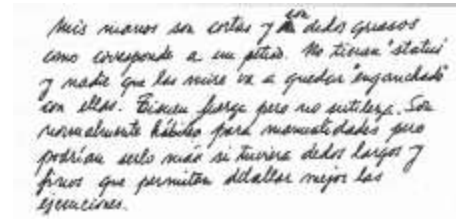 Mis manos son cortas y con dedos gruesos
como corresponde a un petiso. No tienen "status"
y nadie que las mire va a quedar "enganchado"
con ellas. Tienen fuerza pero no sutileza. Son
normalmente hábiles para manualidades pero
podrían serlo más si tuviera dedos largos y
finos que permitan detallar mejor las
ejecuciones.